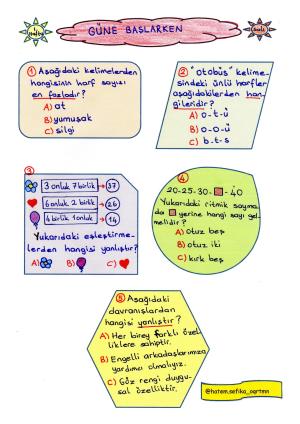 GÜNE BAŞLARKEN
1 Aşağıdaki kelimelerden
hangisinin harf sayısı
en fazladır?
A) at
B) yumuşak
C) silgi
2 "Otobüs" kelime-
sindeki ünlü harfler
aşağıdakilerden han-
gileridir?
A) o-t-ü
B) o-o-ü
C) b-t-s
3
3 onluk 7 birlik → 37
6 onluk 2 birlik → 26
4 birlik 1 onluk → 14
Yukarıdaki eşleştirme-
lerden hangisi yanlıştır?
A) B) C)
4
20-25-30- -40
Yukarıdaki ritmik sayma-
da yerine hangi sayı gel-
melidir?
A) otuz beş
B) otuz iki
C) kırk beş
5 Aşağıdaki
davranışlardan
hangisi yanlıştır?
A) Her birey farklı özel-
liklere sahiptir.
B) Engelli arkadaşlarımıza
yardımcı olmalıyız.
C) Göz rengi duygu-
sal özelliktir.
@hatem.sefika_ogrtmn